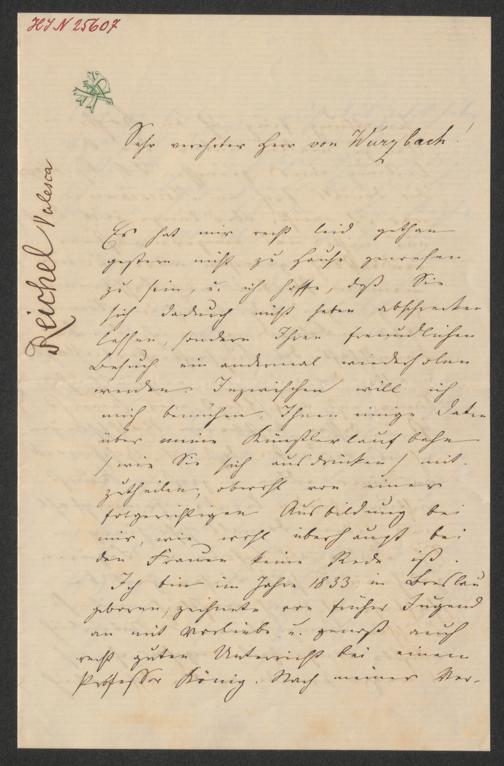 HIN 25607
Reichel Valesca
Sehr verehrter Herr von Wurzbach!
Es hat mir recht leid gethan
gestern nicht zu Hause gewesen
zu sein, u. ich hoffe, daß Sie
sich dadurch nicht haben abschrecken
lassen, sondern Ihren freundlichen
Besuch ein andermal wiederholen
werden. Inzwischen will ich
mich bemühen, Ihnen einige Daten
über meine Künstlerlaufbahn
(wie Sie sich ausdrücken) mit-
zutheilen, obwohl von einer
folgerichtigen Ausbildung bei
mir, wie wohl überhaupt bei
den Frauen keine Rede ist.
Ich bin im Jahre 1833 in Breslau
geboren, zeichnete von früher Jugend
an mit Vorliebe u. genoß auch
recht guten Unterricht bei einem
Professor König. Nach meiner Ver-